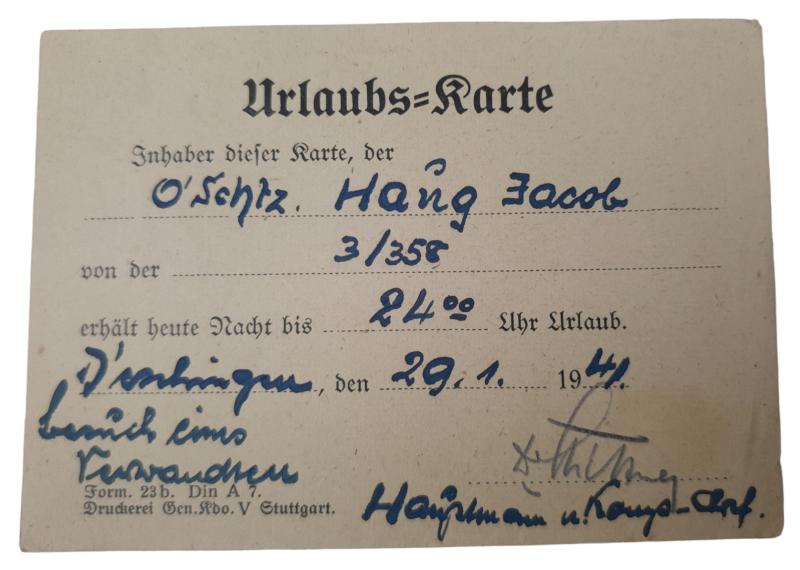 Urlaubs=Karte
Inhaber dieser Karte, der
O'Schtz. Haug Jacob
von der 3/358
erhält heute Nacht bis 24⁰⁰ Uhr Urlaub.
, den 29. 1. 1941.
besuch eines
Verwandten
Form. 23b. Din A 7.
Druckerei Gen.Kdo. V Stuttgart.
Hauptmann u. Komp-Chef.